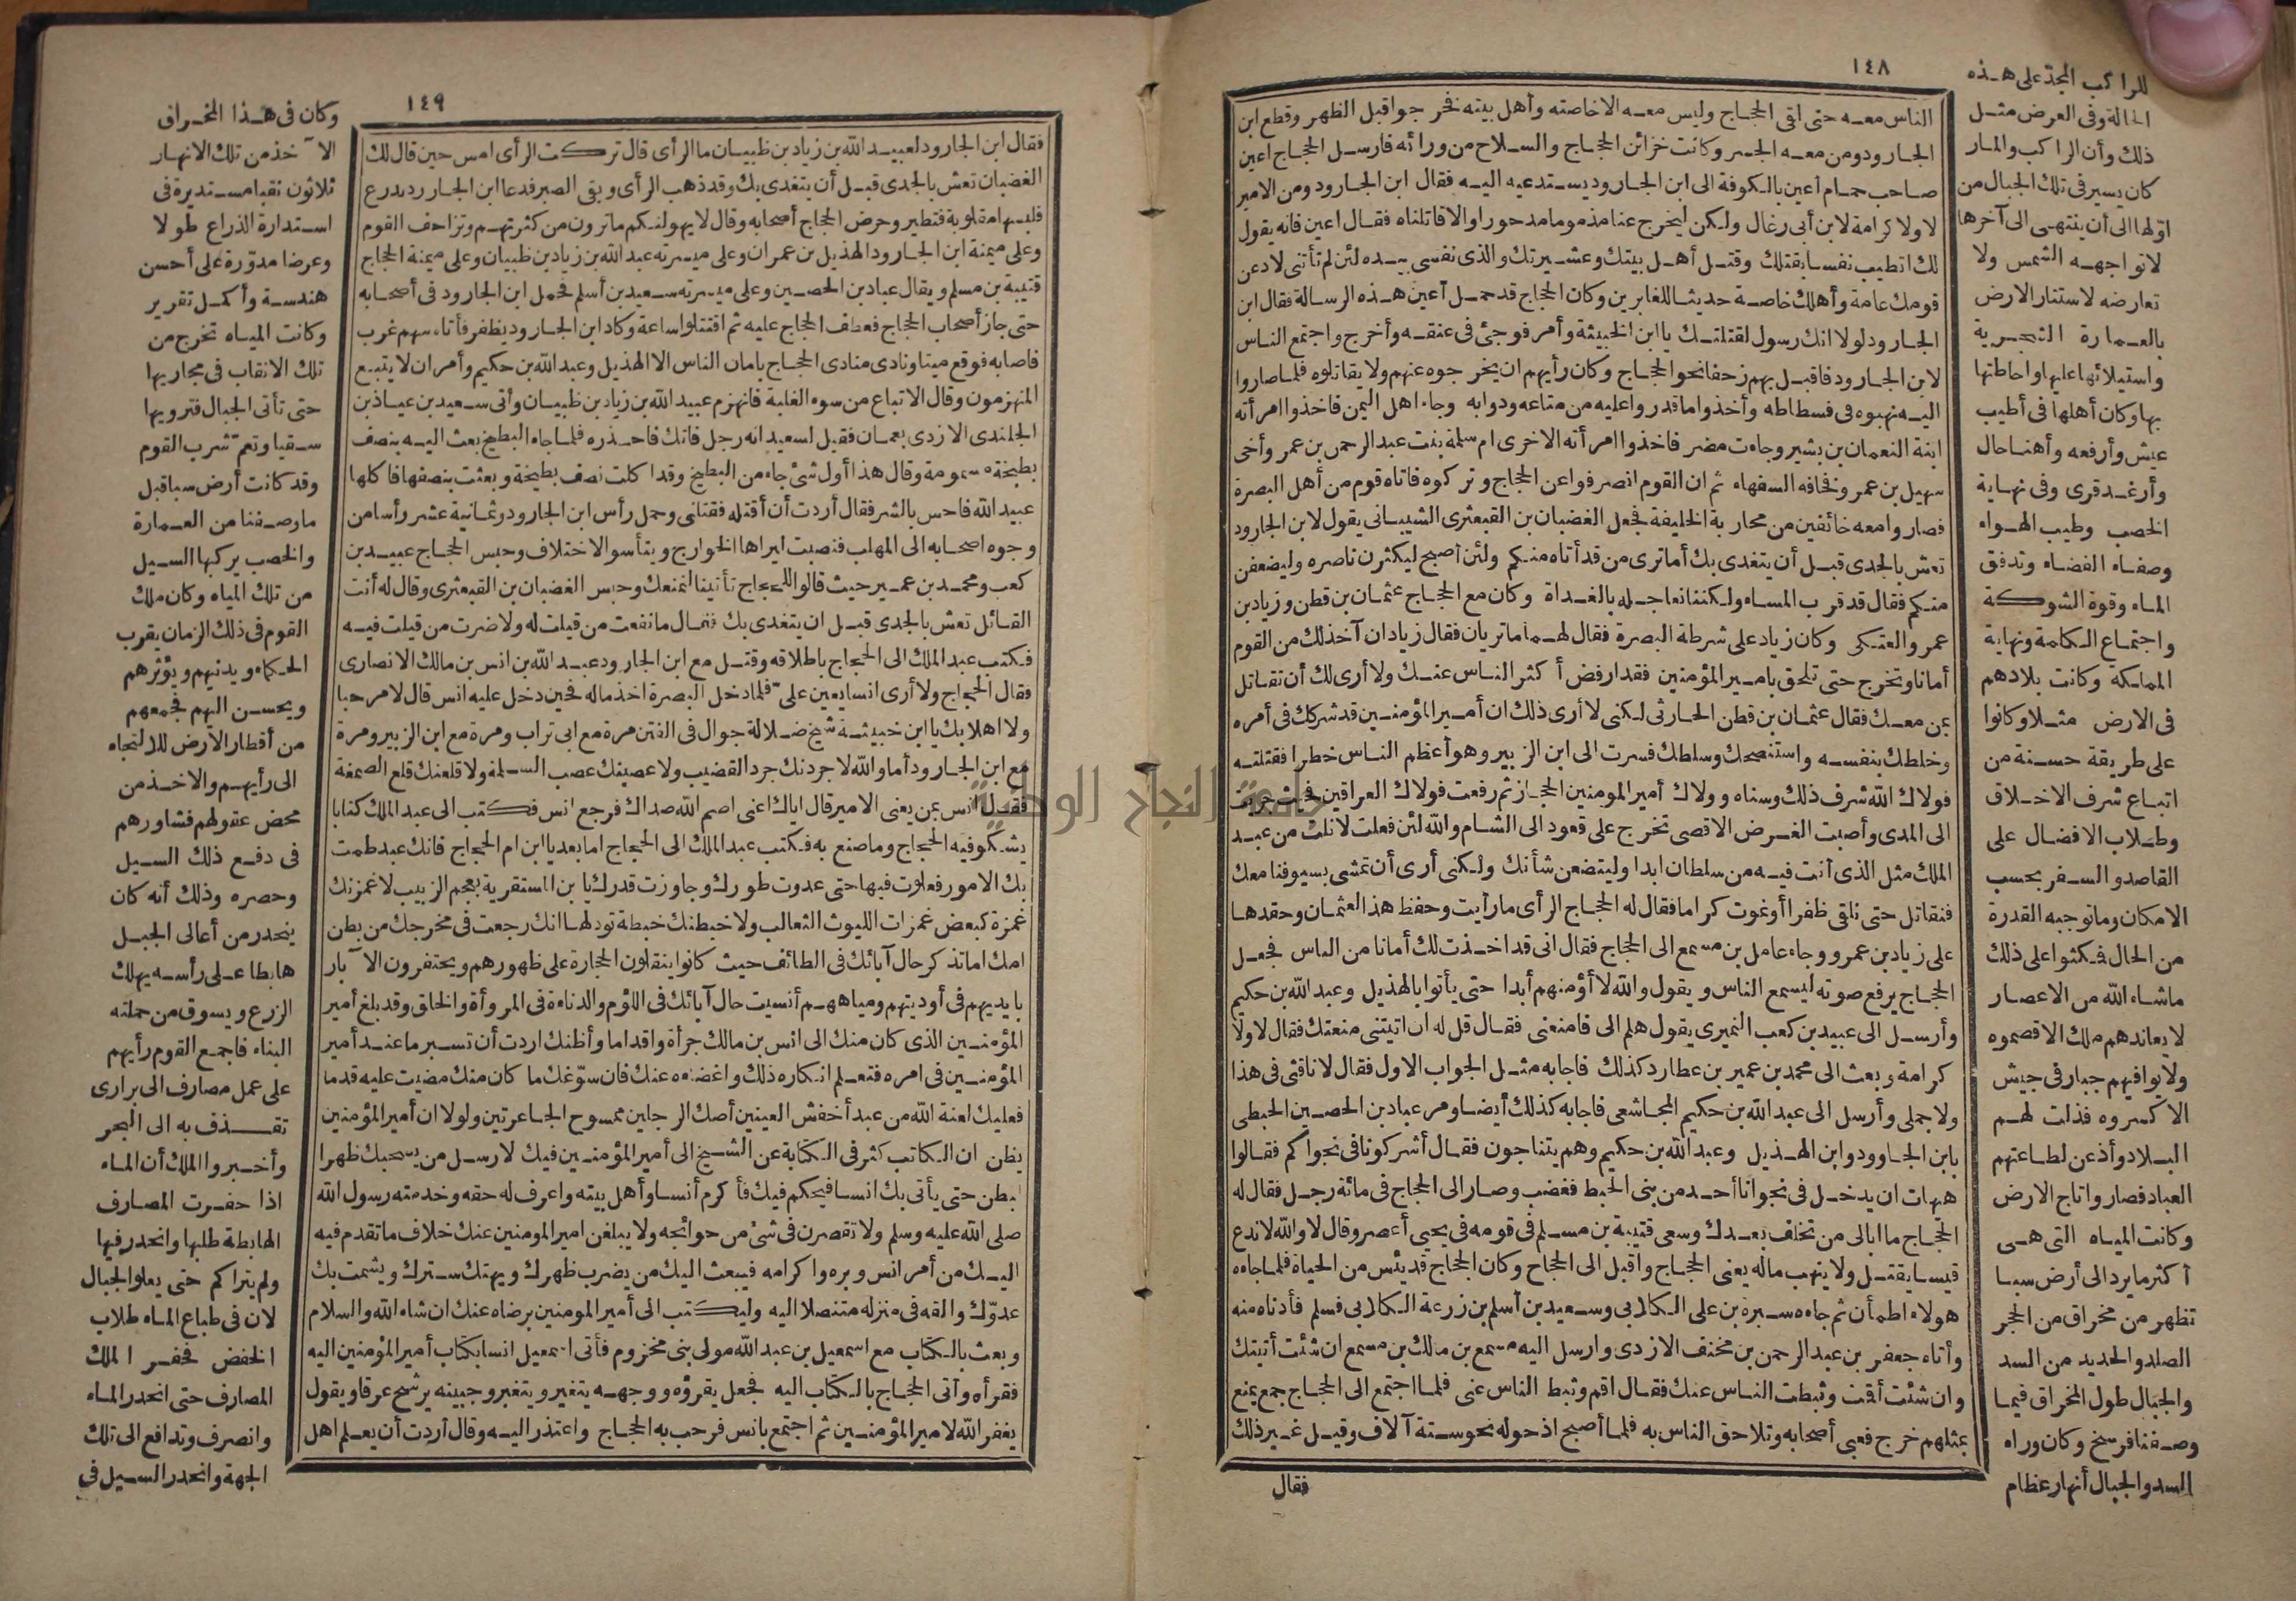 ١٤٨
الناس معه حتى اقى الحجاج وليس معه الا خاصته وأهل بيته فخرجوا قبل الظهر وقطع ابن
الجارود ومن معه الجسر وكانت خزائن الحجاج والسلاح من ورائه فارسل الحجاج اعين
صاحب حمام أعين بالكوفة الى ابن الجارود يستدعيه اليه فقال ابن الجارود ومن الامير
لا ولا كرامة لابن أبى رغال ولكن ليخرج عنا مذموما مدحورا والا قاتلناه فقال اعين فانه يقول
لك اتطيب نفسا بقتلك وقتل أهل بيتك وعشيرتك والذى نفسى بيده لئن لم تأتنى لادعن
قومك عامة وأهلك خاصة حديثا للغابرين وكان الحجاج قد حمل أعين هذه الرسالة فقال ابن
الجارود لولا انك رسول لقتلتك يا ابن الخبيثة وأمر فوجئ فى عنقه وأخرج واجتمع الناس
لابن الجارود فاقبل بهم زحفا نحو الحجاج وكان رأيهم ان يخرجوه عنهم ولا يقاتلوه فلما صاروا
اليه نهبوه فى فسطاطه وأخذوا ما قدروا عليه من متاعه ودوابه وجاء اهل اليمن فاخذوا امرأته
ابنة النعمان بن بشير وجاءت مضر فاخذوا امرأته الاخرى ام سلمة بنت عبد الرحمن بن عمرو أخى
سهيل بن عمرو فخافه السفهاء ثم ان القوم انصرفوا عن الحجاج وتركوه فاتاه قوم من أهل البصرة
فصاروا معه خائفين من محاربة الخليفة فجعل الغضبان بن القبعثرى الشيبانى يقول لابن الجارود
تعش بالجدى قبل أن يتغدى بك أما ترى من قد أتاه منكم ولئن أصبح ليكثرن ناصره وليضعفن
منكم فقال قد قرب المساء ولكننا نعاجله بالغداة وكان مع الحجاج عثمان بن قطن وزياد بن
عمرو العتكى وكان زياد على شرطة البصرة فقال لهما ما تريان فقال زياد ان آخذ لك من القوم
أمانا وتخرج حتى تلحق بامير المؤمنين فقد ارفض أكثر الناس عنك ولا أرى لك أن تقاتل
بمن معك فقال عثمان بن قطن الحارثى لكنى لا أرى ذلك ان أمير المؤمنين قد شركك فى أمره
وخلطك بنفسه واستنصحك وسلطك فسرت الى ابن الزبير وهو أعظم الناس خطرا فقتلته
فولاك الله شرف ذلك وسناه وولاك أمير المومنين الحجاز ثم رفعت فولاك العراقين فحيث جريت
الى المدى وأصبت الغرض الاقصى تخرج على قعود الى الشام والله لئن فعلت لا نلت من عبد
الملك مثل الذى أنت فيه من سلطان ابدا وليتضعن شأنك ولكنى أرى أن تمشى بسيوفنا معك
فنقاتل حتى نلقى ظفرا أو نموت كراما فقال له الحجاج الرأى ما رأيت وحفظ هذا لعثمان وحقدها
على زياد بن عمرو وجاء عامل بن مسمع الى الحجاج فقال انى قد اخذت لك أمانا من الناس فجعل
الحجاج يرفع صوته ليسمع الناس ويقول والله لا أؤمنهم أبدا حتى يأتوا بالهذيل وعبد الله بن حكيم
وأرسل الى عبيد بن كعب النميرى يقول هلم الى فامنعنى فقال قل له ان اتيتنى منعتك فقال لا ولا
كرامة وبعث الى محمد بن عمير بن عطارد كذلك فاجابه مثل الجواب الاول فقال لا ناقتى فى هذا
ولا جملى وأرسل الى عبد الله بن حكيم المجاشعى فاجابه كذلك أيضا ومر عباد بن الحصين الحبطى
بابن الجاوود وابن الهذيل وعبد الله بن حكيم وهم يتناجون فقال أشركونا فى نجواكم فقالوا
هيهات ان يدخل فى نجوانا أحد من بنى الحبط فغضب وصار الى الحجاج فى مائة رجل فقال له
الحجاج ما ابالى من تخلف بعدك وسعى قتيبة بن مسلم فى قومه فى يحيى أعصر وقال لا والله لا ندع
قيسا يقتل ولا ينهب ماله يعنى الحجاج وأقبل الى الحجاج وكان الحجاج قد يئس من الحياة فلما جاءه
هولاء اطمأن ثم جاءه سبرة بن على الكلابى وسعيد بن أسلم بن زرعة الكلابى فسلم فأدناه منه
وأتاه جعفر بن عبد الرحمن بن مخنف الازدى وارسل اليه مسمع بن مالك بن مسمع ان شئت أتيتك
وان شئت أقت وثبطت الناس عنك فقال اقم وثبط الناس عنى فلما اجتمع الى الحجاج جمع يمنع
بمثلهم خرج فعبى أصحابه وتلاحق الناس به فلما أصبح اذ حوله نحو ستة آلاف وقيل غير ذلك
فقال
للراكب المجد على هذه
الحالة وفى العرض مثل
ذلك وأن الراكب والمار
كان يسير فى تلك الجبال من
اولها الى أن ينتهى الى آخرها
لا تواجهه الشمس ولا
تعارضه لاستتار الارض
بالعمارة الشجرية
واستيلائها عليها واحاطتها
بها وكان أهلها فى أطيب
عيش وأرفعه وأهنا حال
وأرغد قرى وفى نهاية
الخصب وطيب الهواء
وصفاء الفضاء وتدفق
الماء وقوة الشوكة
واجتماع الكلمة ونهاية
المملكة وكانت بلادهم
فى الارض مثلا وكانوا
على طريقة حسنة من
اتباع شرف الاخلاق
وطلاب الافضال على
القاصد والسفر بحسب
الامكان وما توجبه القدرة
من الحال فمكثوا على ذلك
ماشاء الله من الاعصار
لا يعاندهم ملك الا قصموه
ولا يوافيهم جبار فى جيش
الا كسروه فذلت لهم
البلاد وأذعن لطاعتهم
العباد فصاروا تاج الارض
وكانت المياه التى هى
أكثر ما يرد الى أرض سبا
تظهر من مخراق من الحجر
الصلد والحديد من السد
والجبال طول المخراق فيما
وصفنا فرسخ وكان وراء
السد والجبال أنهار عظام
١٤٩
فقال ابن الجارود لعبيد الله بن زياد بن ظبيان ما الرأى قال تركت الرأى امس حين قال لك
الغضبان تعش بالجدى قبل أن يتغدى بك وقد ذهب الرأى وبقى الصبر فدعا ابن الجارود بدرع
فلبسها مقلوبة فتطير وحرض الحجاج أصحابه وقال لا يهولنكم ما ترون من كثرتهم وتزاحف القوم
وعلى ميمنة ابن الجارود الهذيل بن عمران وعلى ميسرته عبد الله بن زياد بن ظبيان وعلى ميمنة الحجاج
قتيبة بن مسلم ويقال عباد بن الحصين وعلى ميسرته سعيد بن أسلم فحمل ابن الجارود فى أصحابه
حتى جاز أصحاب الحجاج فعطف الحجاج عليه ثم اقتتلوا ساعة وكاد ابن الجارود يظفر فأتاه سهم غرب
فاصابه فوقع ميتا ونادى منادى الحجاج بامان الناس الا الهذيل وعبد الله بن حكيم وأمر ان لا يتبع
المنهزمون وقال الاتباع من سوء الغلبة فانهزم عبيد الله بن زياد بن ظبيان وأتى سعيد بن عياذ بن
الجلندى الازدى بعمان فقيل لسعيد انه رجل فاتك فاحذره فلما جاء البطيخ بعث اليه بنصف
بطيخة مسمومة وقال هذا أول شئ جاء من البطيخ وقد اكلت نصف بطيخة وبعثت بنصفها فاكلها
عبيد الله فاحس بالشر فقال أردت أن أقتله فقتلنى وحمل رأس ابن الجارود وثمانية عشر رأسا من
وجوه اصحابه الى المهلب فنصبت ليراها الخوارج ويتأسوا الاختلاف وحبس الحجاج عبيد بن
كعب ومحمد بن عمير حيث قالوا للحجاج تأتينا لنمنعك وحبس الغضبان بن القبعثرى وقال له أنت
القائل تعش بالجدى قبل ان يتغدى بك فقال ما نفعت من قيلت له ولا ضرت من قيلت فيه
فكتب عبد الملك الى الحجاج باطلاقه وقتل مع ابن الجارود عبد الله بن انس بن مالك الانصارى
فقال الحجاج ولا أرى انسا يعين على فلما دخل البصرة اخذ ماله فحين دخل عليه انس قال لا مرحبا
ولا اهلا بك يا ابن خبيثة شيخ ضلالة جوال فى الفتن مرة مع ابى تراب ومرة مع ابن الزبير ومرة
مع ابن الجارود أما والله لاجردنك جرد القضيب ولاعصبنك عصب السلمة ولاقلعنك قلع الصمغة
فقال انس بمن يعنى الامير قال اياك اعنى اصم الله صداك فرجع انس فكتب الى عبد الملك كتابا
يشكو فيه الحجاج وما صنع به فكتب عبد الملك الى الحجاج اما بعد يا ابن ام الحجاج فانك عبد طمت
بك الامور فعلوت فيها حتى عدوت طورك وجاوزت قدرك يا بن المستقربة بعجم الزبيب لاغمزنك
غمزة كبعض غمزات الليوث الثعالب ولاخبطنك خبطة تود لها انك رجعت فى مخرجك من بطن
امك اما تذكر حال آبائك فى الطائف حيث كانوا ينقلون الحجارة على ظهورهم ويحتفرون الآبار
بايديهم فى أوديتهم ومياههم أنسيت حال آبائك فى اللؤم والدناءة فى المروأة والخلق وقد بلغ أمير
المؤمنين الذى كان منك الى انس بن مالك جرأة واقداما وأظنك اردت أن تسبر ما عند أمير
المؤمنين فى امره فتعلم انكاره ذلك واغضاءه عنك فان سوغك ما كان منك مضيت عليه قدما
فعليك لعنة الله من عبد أخفش العينين أصك الرجلين ممسوح الجاعرتين ولولا ان أمير المؤمنين
يظن ان الكاتب كثر فى الكتابة عن الشيخ الى أمير المؤمنين فيك لارسل من يسحبك ظهرا
لبطن حتى يأتى بك انسا فيحكم فيك فأكرم أنسا وأهل بيته واعرف له حقه وخدمته رسول الله
صلى الله عليه وسلم ولا تقصرن فى شئ من حوائجه ولا يبلغن امير المومنين عنك خلاف ما تقدم فيه
اليك من أمر انس وبره واكرامه فيبعث اليك من يضرب ظهرك ويهتك سترك ويشمت بك
عدوك والقه فى منزله متنصلا اليه وليكتب الى أمير المومنين برضاه عنك ان شاء الله والسلام
وبعث بالكتاب مع اسمعيل بن عبد الله مولى بنى مخزوم فأتى اسمعيل انسا بكتاب أمير المؤمنين اليه
فقرأه وأتى الحجاج بالكتاب اليه فجعل يقرؤه ووجهه يتغير ويتغبر وجبينه يرشح عرقا ويقول
يغفر الله لامير المؤمنين ثم اجتمع بانس فرحب به الحجاج واعتذر اليه وقال أردت أن يعلم اهل
وكان فى هذا المخراق
الآخذ من تلك الانهار
ثلاثون نقبا مستديرة فى
استدارة الذراع طولا
وعرضا مدورة على أحسن
هندسة وأكمل تقرير
وكانت المياه تخرج من
تلك الانقاب فى مجاريها
حتى تأتى الجبال فترويها
سقيا وتعم شرب القوم
وقد كانت أرض سبا قبل
ما وصفنا من العمارة
والخصب يركبها السيل
من تلك المياه وكان ملك
القوم فى ذلك الزمان يقرب
الحكماء ويدنيهم ويؤثرهم
ويحسن اليهم فجمعهم
من أقطار الارض للالتجاه
الى رأيهم والاخذ من
محض عقولهم فشاورهم
فى دفع ذلك السيل
وحصره وذلك أنه كان
ينحدر من أعالى الجبل
هابطا على رأسه يهلك
الزرع ويسوق من حملته
البناء فاجمع القوم رأيهم
على عمل مصارف الى برارى
تقذف به الى البحر
وأخبروا الملك أن الماء
اذا حفرت المصارف
الهابطة طلبها وانحدر فيها
ولم يتراكم حتى يعلو الجبال
لان فى طباع الماء طلاب
الخفض فحفر الملك
المصارف حتى انحدر الماء
وانصرف وتدافع الى تلك
الجهة وانحدر السيل فى
جامعة النجاح الوطنية